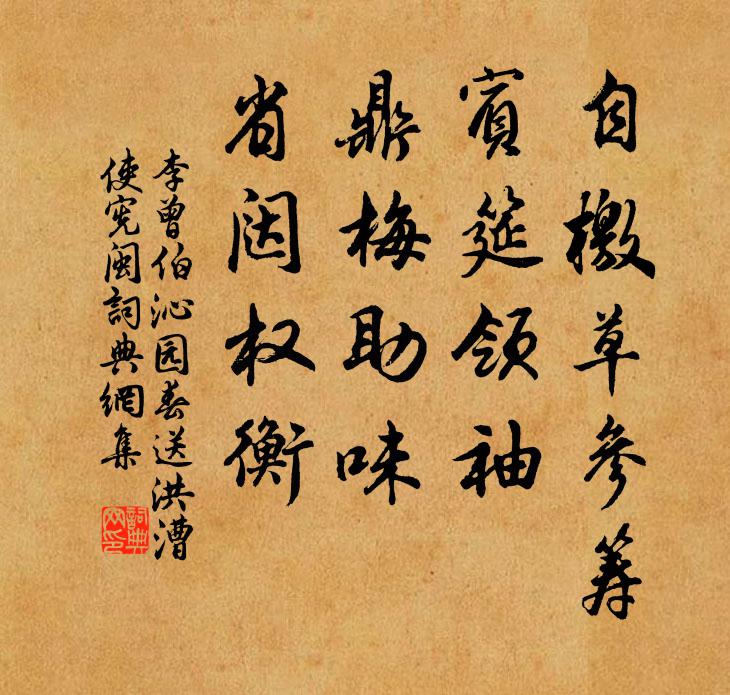 自檄草参筹
賓筵领袖
鼎梅助味
省闼权衡
李曾伯沁园春送洪漕
使宪闽詞典網集
詞典網印